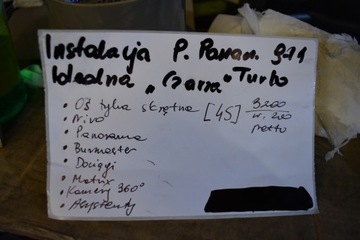 Instalacja P. Panam. 971
Idealna „Czarna" Turbo
• Oś tylna skrętna [4S] 3200
• Nivo netto
• Panorama
• Burmester
• Dociągi
• Matrix
• Kamery 360°
• Asystenty